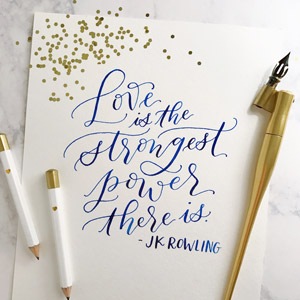 Love
is the
strongest
power
there is.
- JK ROWLING